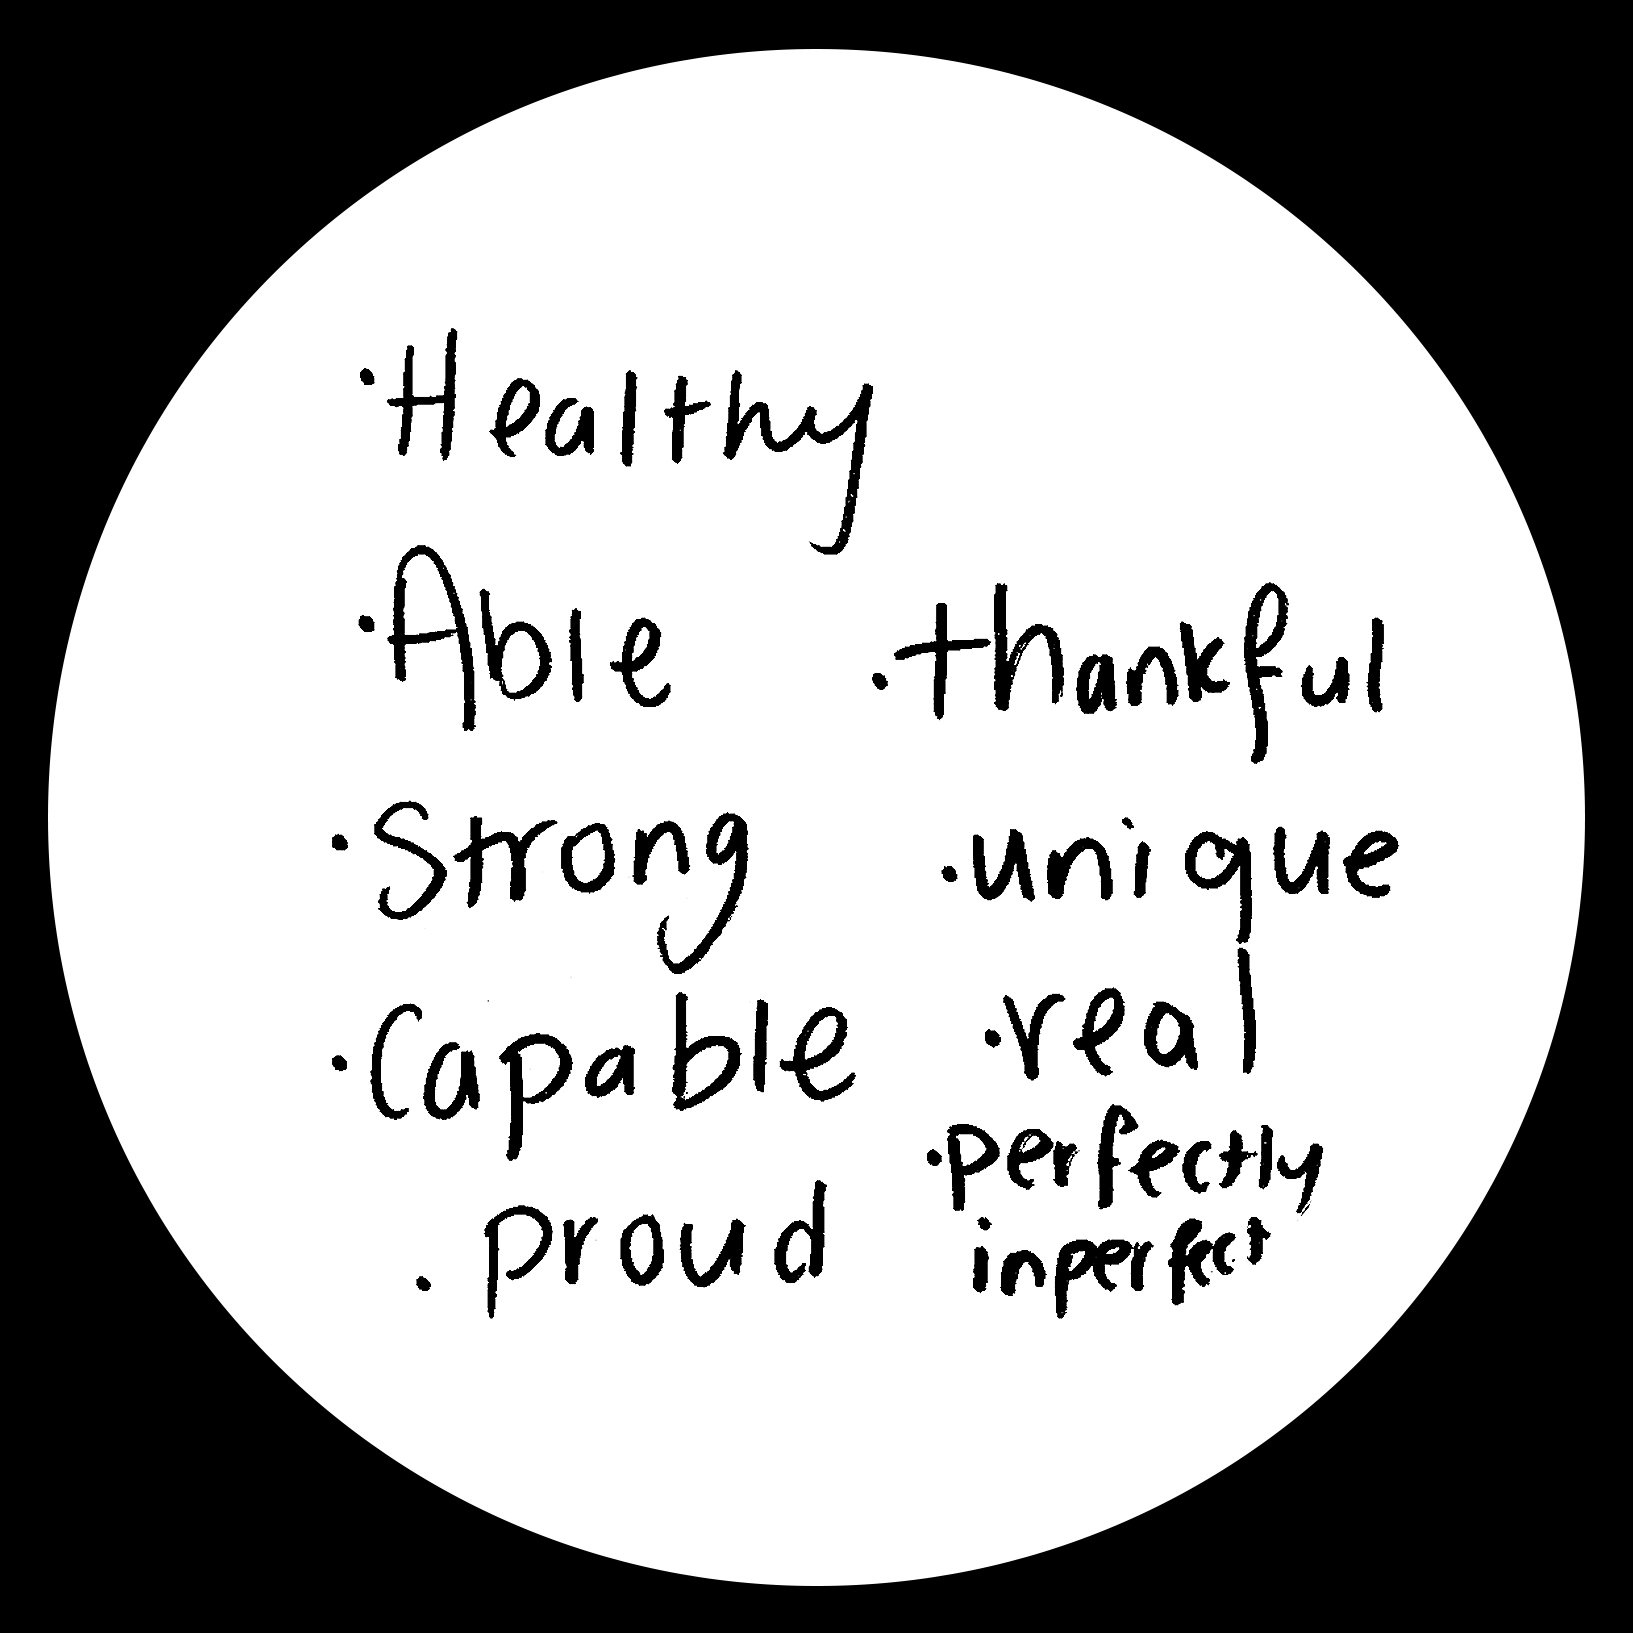 ·Healthy
·Able
·Strong
·Capable
·proud
·thankful
·unique
·real
·perfectly
inperfect